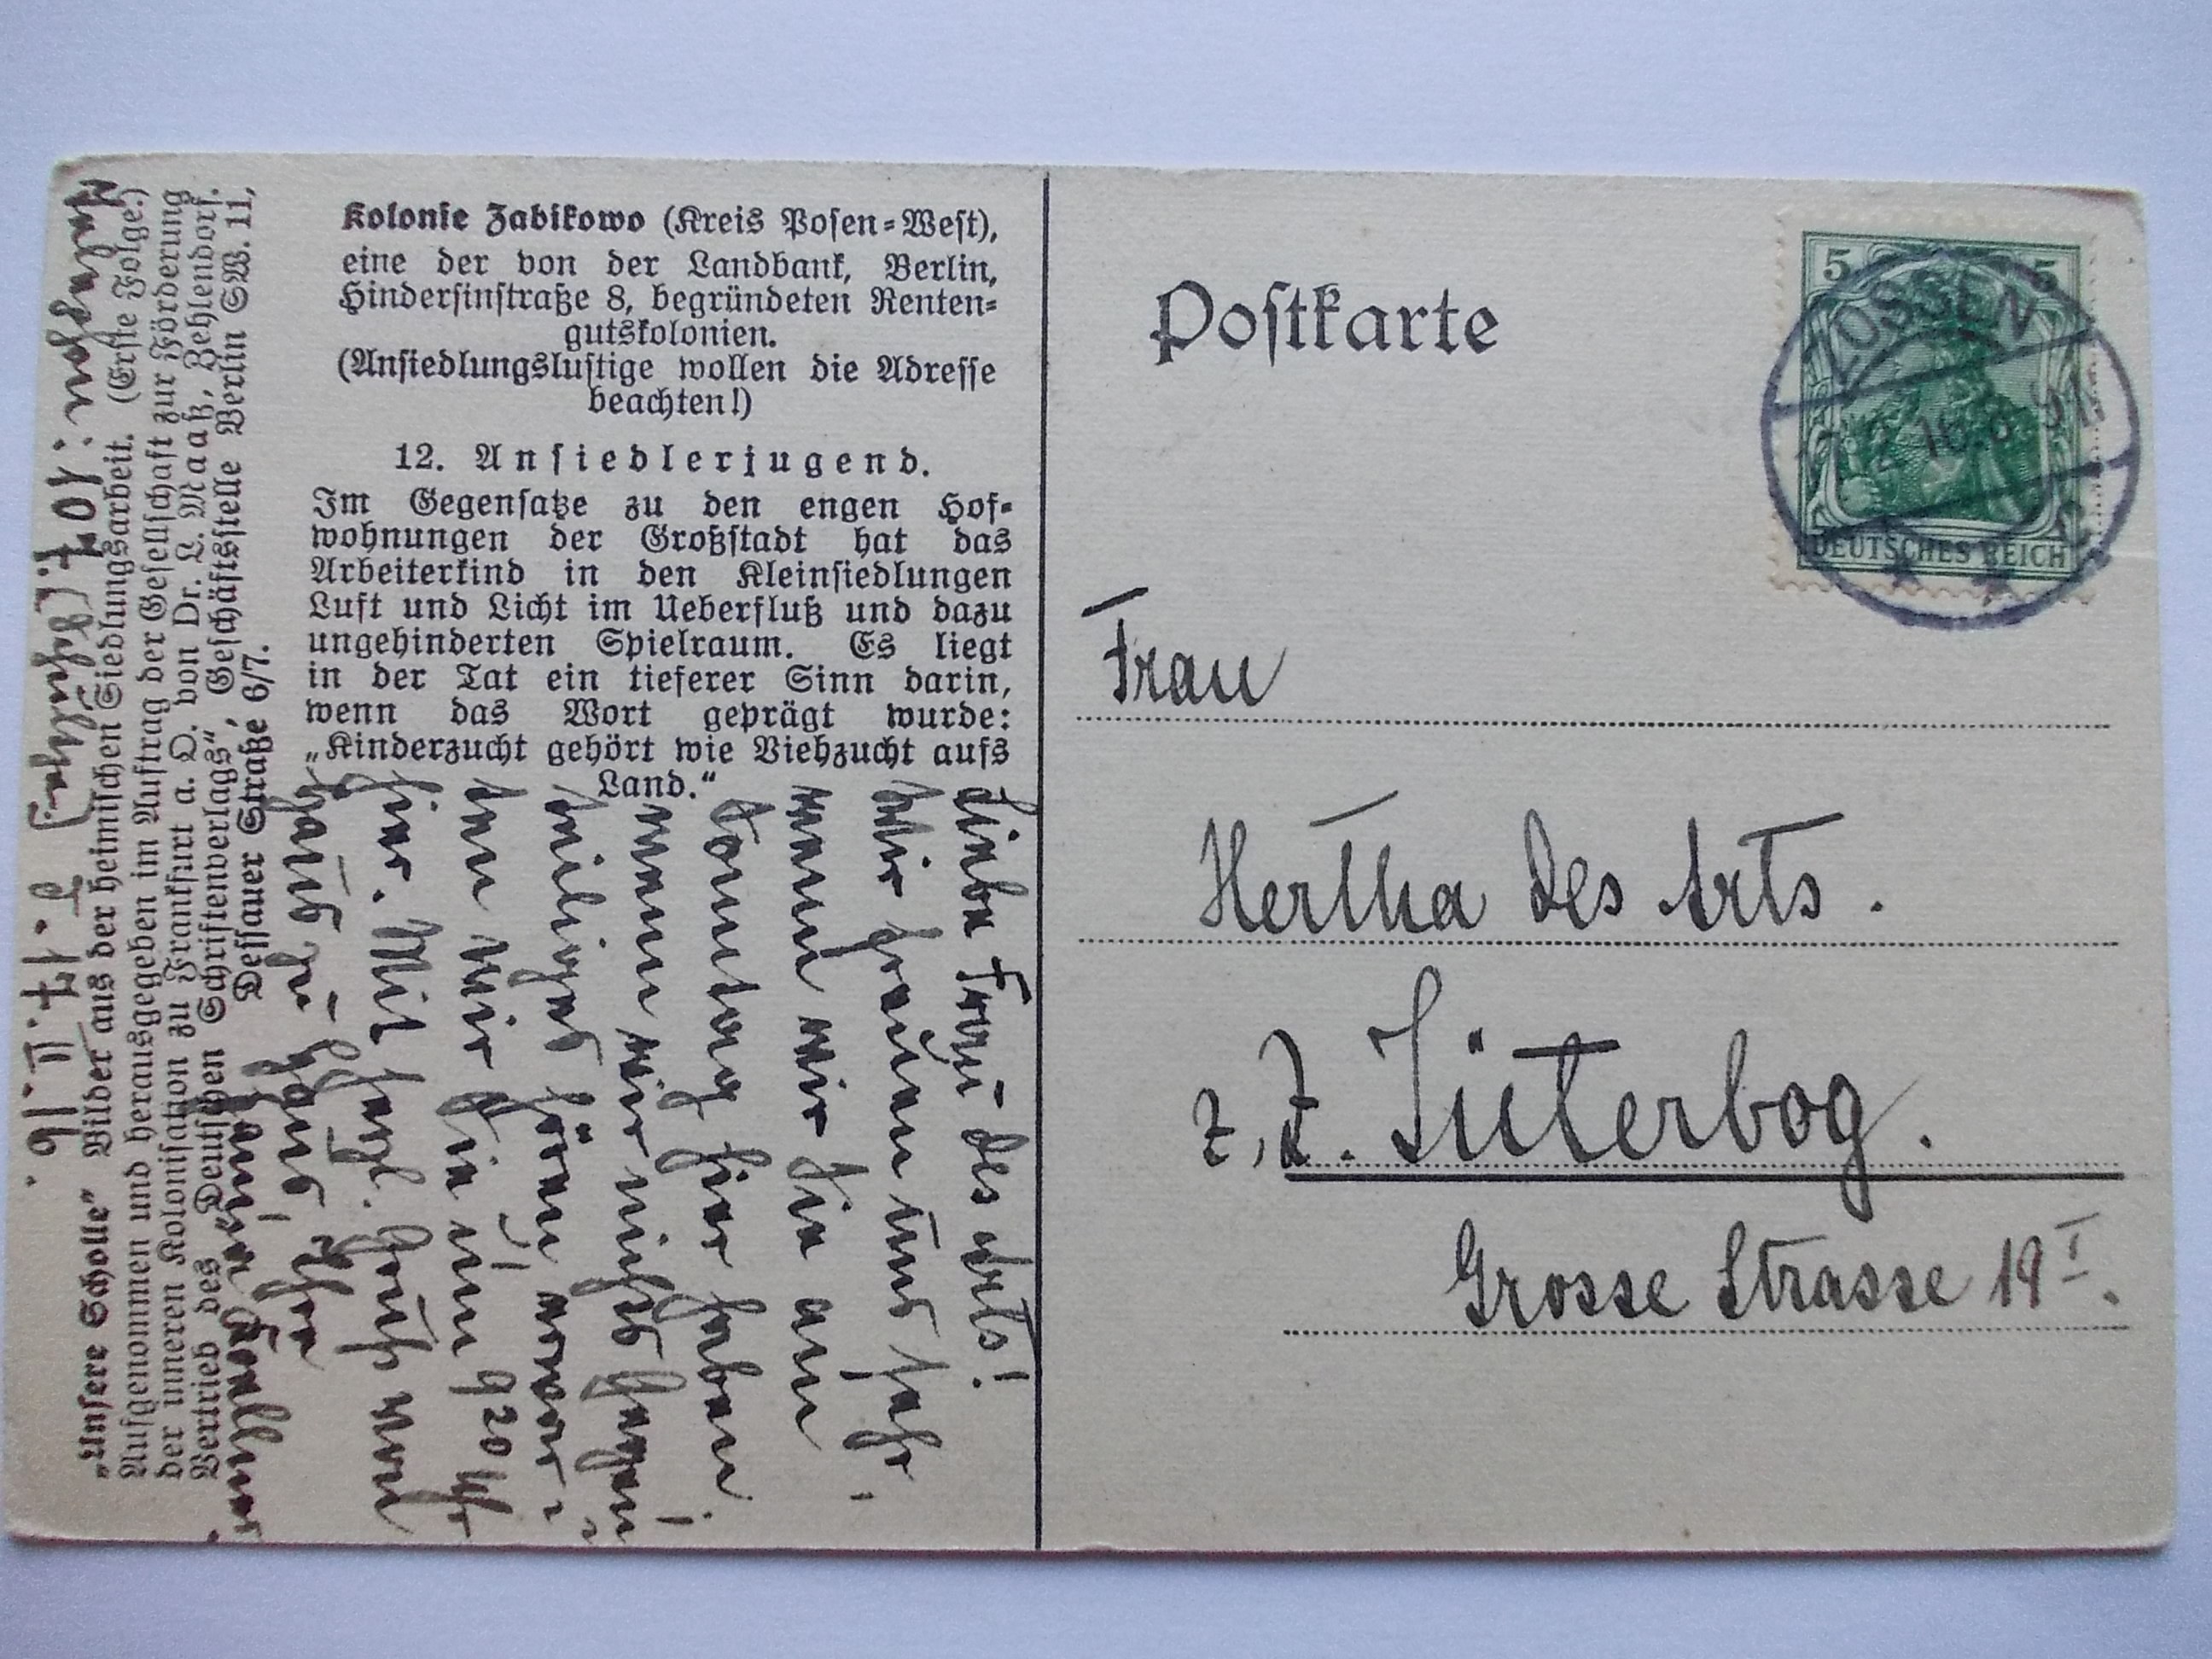 Kolonie Zabikowo (Kreis Posen-West),
eine der von der Landbank, Berlin,
Hindersinstraße 8, begründeten Renten-
gutskolonien.
(Ansiedlungslustige wollen die Adresse
beachten!)
12. Ansiedlerjugend.
Im Gegensatze zu den engen Hof-
wohnungen der Großstadt hat das
Arbeiterkind in den Kleinsiedlungen
Luft und Licht im Ueberfluß und dazu
ungehinderten Spielraum. Es liegt
in der Tat ein tieferer Sinn darin,
wenn das Wort geprägt wurde:
„Kinderzucht gehört wie Viehzucht aufs
Land.“
„Unsere Scholle“ Bilder aus der heimischen Siedlungsarbeit. (Erste Folge.)
Aufgenommen und herausgegeben im Auftrag der Gesellschaft zur Förderung
der inneren Kolonisation zu Frankfurt a. O. von Dr. L. Maaß, Zehlendorf.
Vertrieb des „Deutschen Schriftenverlags“, Geschäftsstelle Berlin SW. 11,
Dessauer Straße 6/7.
Liebe Frau Des Arts!
Wir freuen uns sehr,
wenn wir Sie am
Sonntag hier haben!
wenn wir nichts
hören,
wir Sie um 9 20 Uhr
hier. Mit herzl. Gruß von
Haus zu Haus, Ihre
17.II.16.
Postkarte
5 5
DEUTSCHES REICH
ZOSSEN
Frau
Hertha Des Arts.
z. Z. Jüterbog.
Grosse Strasse 19 I.